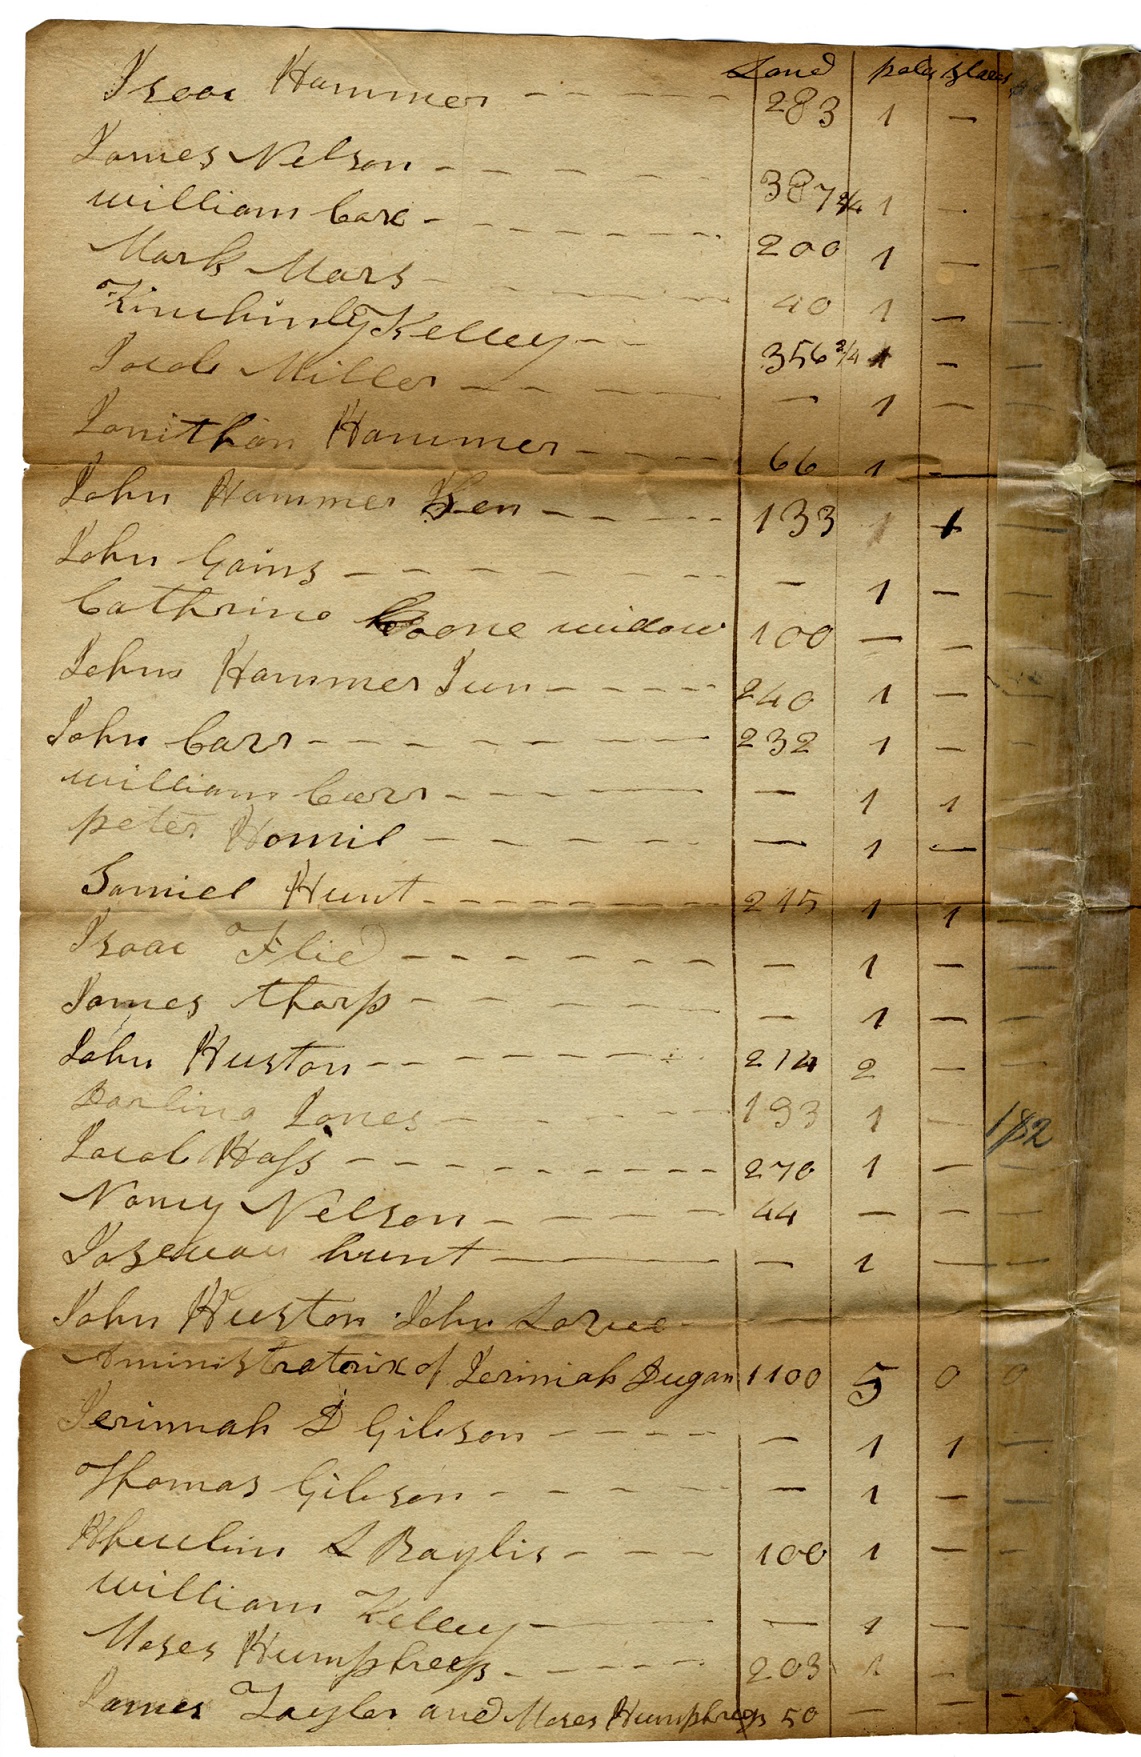 Land pols slaves
Isaac Hammer - - - - - 283 1 —
James Nelson - - - - - - 387 3/4 1 —
William Carr - - - - - - - 200 1 —
Mark Mars - - - - - - 40 1 — —
Kelley - - 356 3/4 1 — —
Jacob Miller - - - - — 1 — —
Jonithan Hammer - - - - 66 1 —
John Hammer Sen - - - - - 133 1 1 —
John Gains - - - - - - - - — 1 — —
Cathrine Boone widow 100 — — —
John Hammer Jun - - - - - 240 1 —
John Carr - - - - - - - - 232 1 — —
William Carr - - - - - - — 1 1 —
peter Homil - - - - - - — 1 — —
Samiel Hunt - - - - - - - 215 1 1 —
Isaac Flie - - - - - - - — 1 — —
James tharp - - - - - - — 1 — —
John Huston - - - - - - - - 214 2 — —
Darling Jones - - - - - 193 1 — 182
Jacob Hass - - - - - - - - - 270 1 — —
Nancy Nelson - - - - - 44 — — —
hunt — — 1 — —
John Huston John
Aministratorix of Jerimiah Dugan 1100 5 0 0
Jerimiah D Gibson - - - - - — 1 1 —
Thomas Gibson - - - - - - — 1 — —
L Baylis - - - - 100 1 — —
William Kelley — — — 1 — —
Moses Humphreys - - - - - 203 1 —
James Tayler and Moses Humphreys 50 — — —